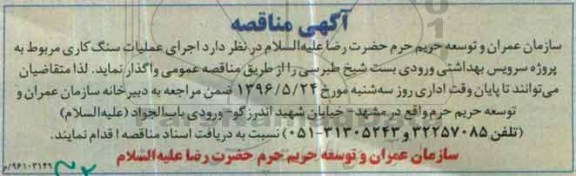 آگهی مناقصه
سازمان عمران و توسعه حریم حرم حضرت رضا علیه‌السلام در نظر دارد اجرای عملیات سنگ کاری مربوط به
پروژه سرویس بهداشتی ورودی بست شیخ طبرسی را از طریق مناقصه عمومی واگذار نماید. لذا متقاضیان
می‌توانند تا پایان وقت اداری روز سه‌شنبه مورخ ۱۳۹۶/۵/۲۴ ضمن مراجعه به دبیرخانه سازمان عمران و
توسعه حریم حرم واقع در مشهد - خیابان شهید اندرزگو - ورودی باب‌الجواد (علیه‌السلام)
(تلفن ۳۲۲۵۷۰۸۵ و ۳۱۳۰۵۲۴۳-۰۵۱) نسبت به دریافت اسناد مناقصه اقدام نمایند.
سازمان عمران و توسعه حریم حرم حضرت رضا علیه‌السلام
۹۶۱۰۳۱۴۹/م